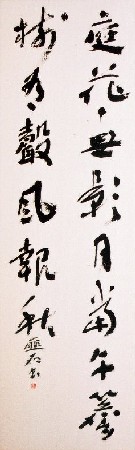 庭花無影月當午簷
樹有聲風報秋